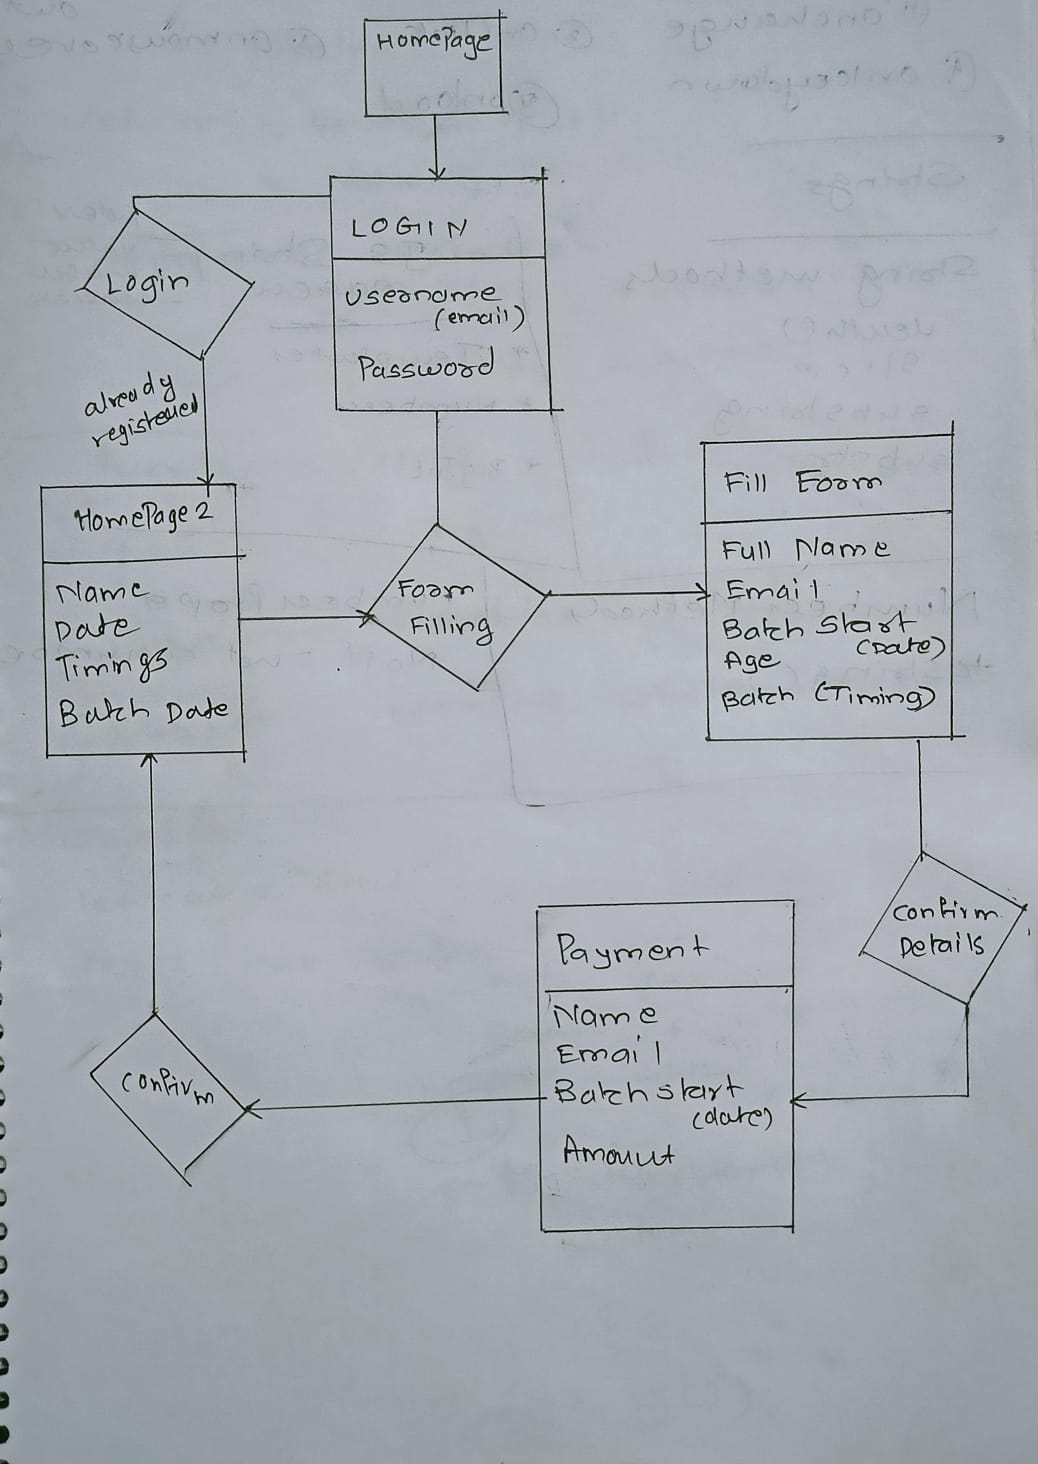 HomePage
LOGIN
Username
(email)
Password
Login
already
registered
HomePage 2
Name
Date
Timings
Batch Date
Form
Filling
Fill Form
Full Name
Email
Batch Start
(Date)
Age
Batch (Timing)
Confirm
Details
Payment
Name
Email
Batch start
(date)
Amount
Confirm